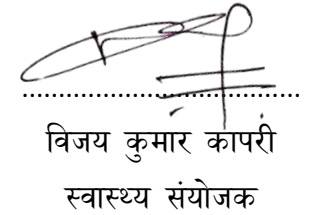 विजय कुमार कापरी
स्वास्थ्य संयोजक